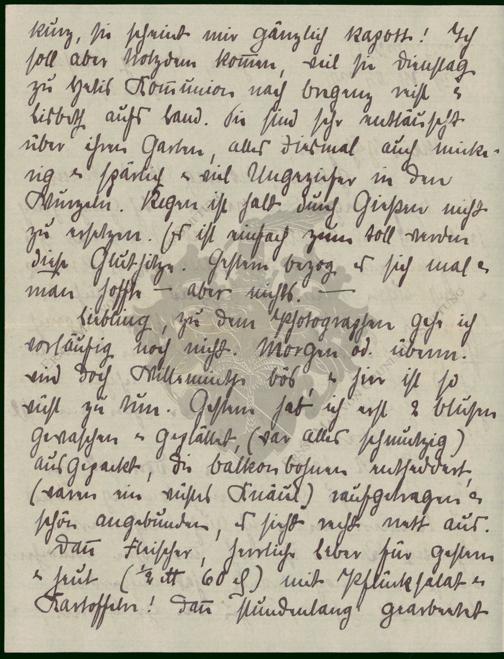 kurz, sie scheint mir gänzlich kapott! Ich
soll aber trotzdem kom̅en, weil sie Dienstag
zu Helis Kom̅union nach Bregenz reist u
Lisbeth aufs Land. Sie sind sehr enttäuscht
über ihren Garten, alles diesmal auch micke-
rig u spärlich u viel Ungeziefer in den
Wurzeln. Regen ist halt durch Gießen nicht
zu ersetzen. Es ist einfach zum toll werden
diese Gluthitze. Gestern bezog es sich mal u
man hoffte — aber nichts. —
Liebling, zu dem Photographen gehe ich
vorläufig noch nicht. Morgen od. überm.
wird doch bös u hier ist so
viel zu tun. Gestern hab' ich erst 2 Blusen
gewaschen u geplättet, (war alles schmutzig)
ausgepackt, die Balkonbohnen entheddert,
(waren ein wüstes Knäuel) raufgetragen u
schön angebunden, es sieht recht nett aus.
Dan̅ Fleischer, herrliche Leber für gestern
u heut (½ ℔ 60 ₰) mit Pflücksalat u
Kartoffeln! Dan̅ stundenlang gearbeitet